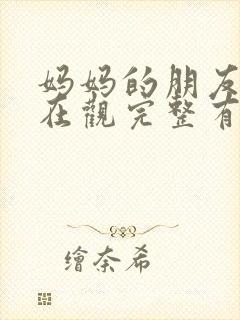 妈妈的朋友
在觀完整有
繪奈希